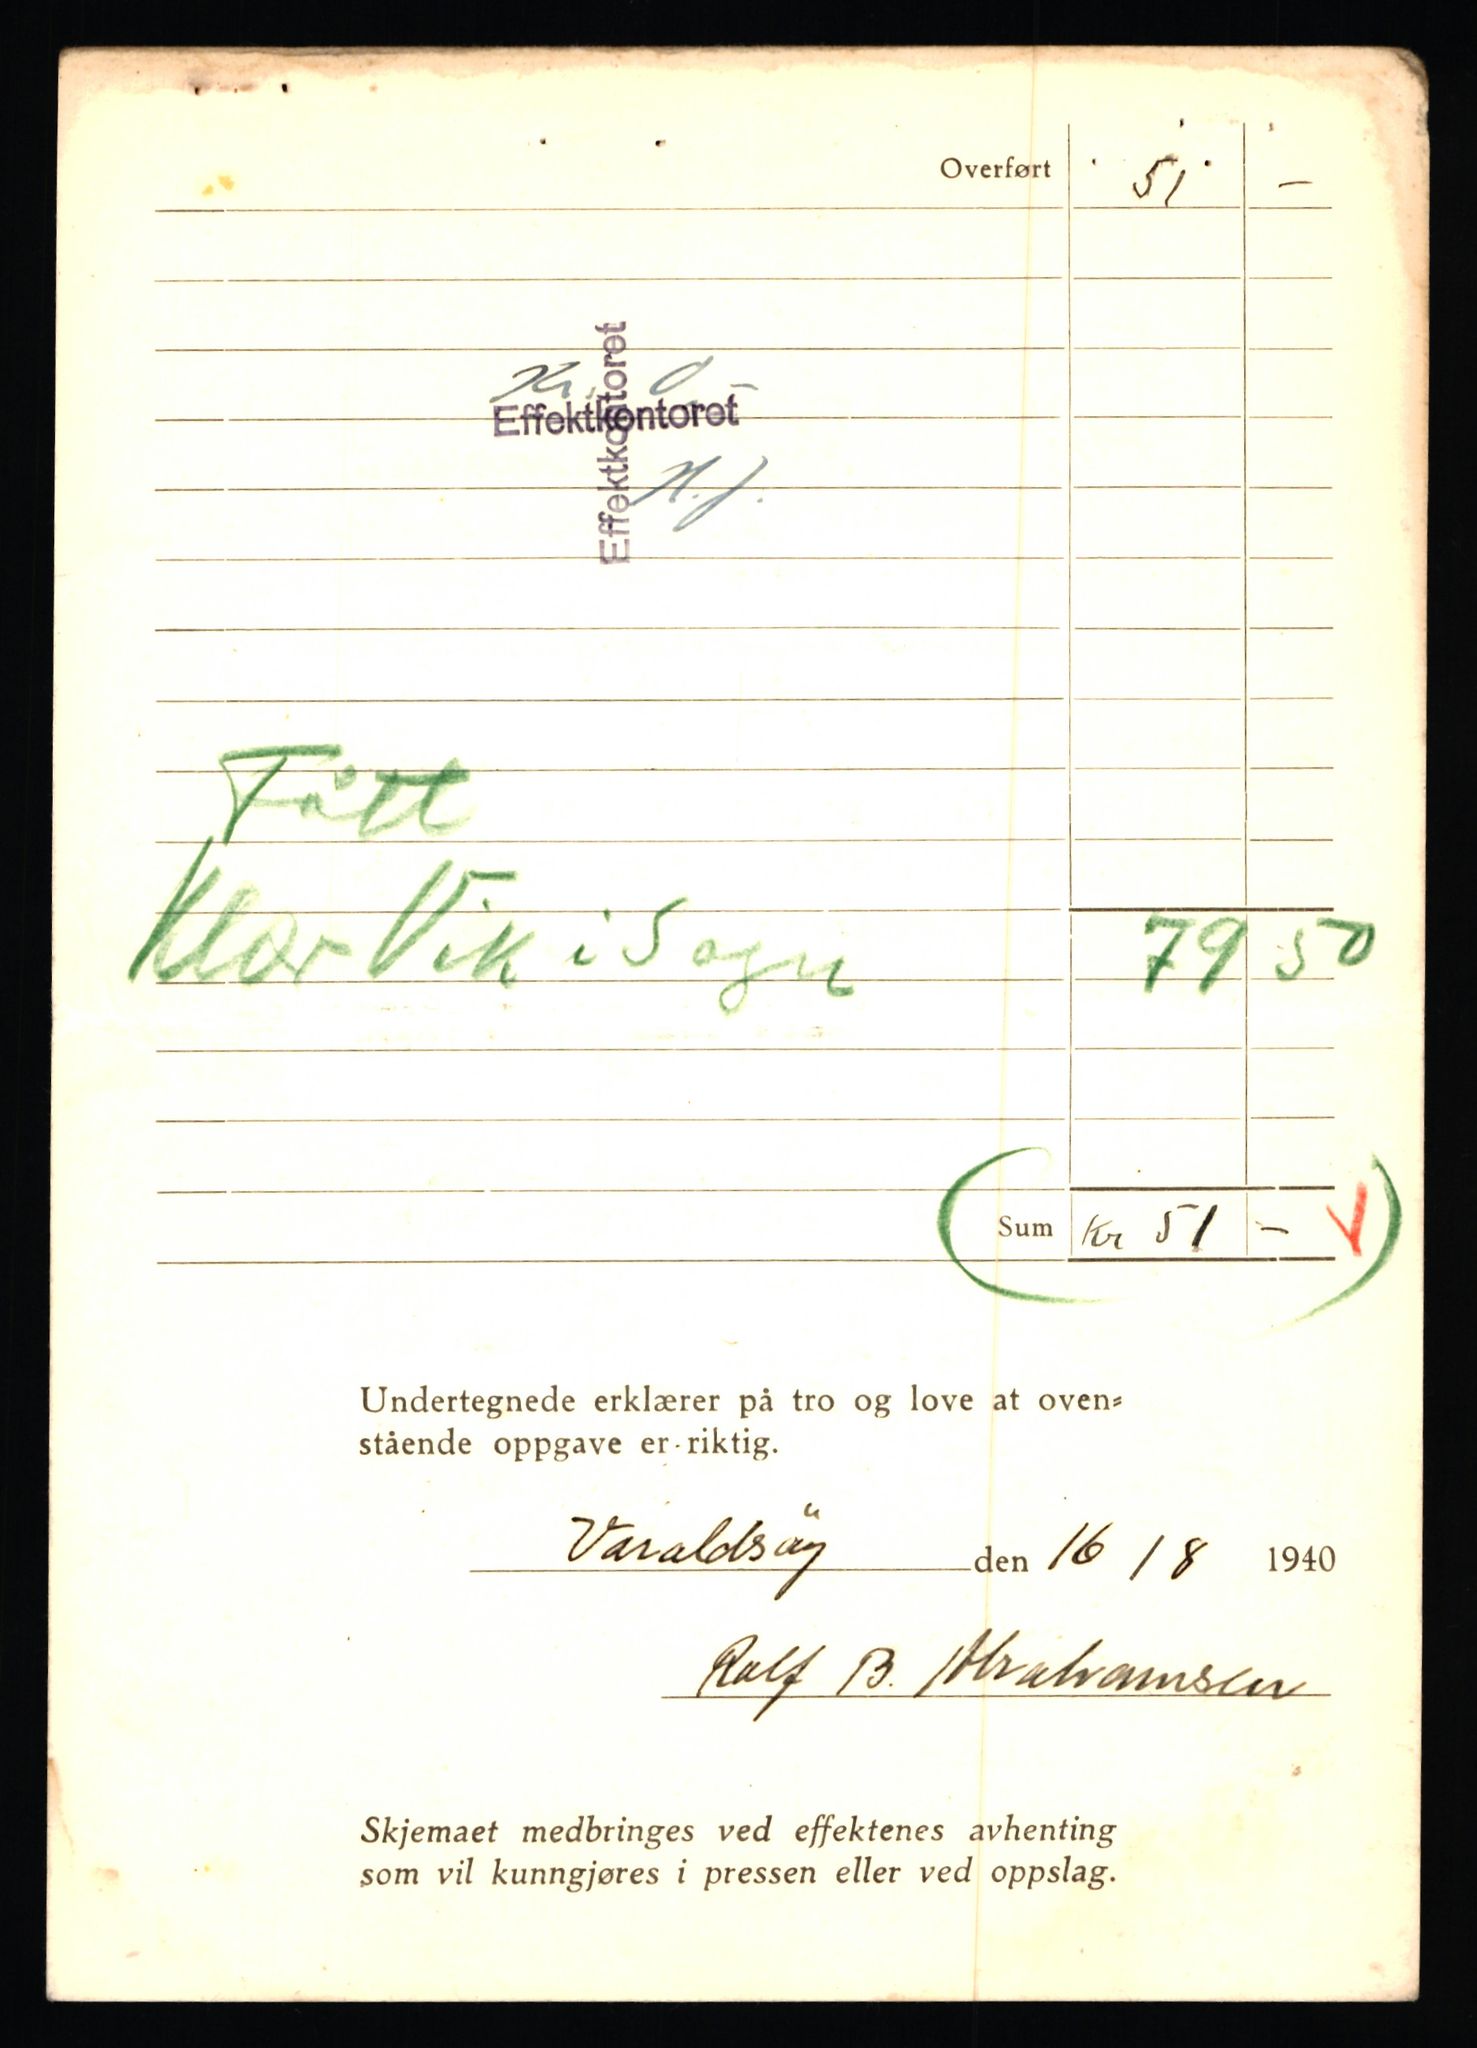 Overført 51 –
Kr. 0,–
Effektkontoret
Effektkontoret
H.J.
Fått
Klær Vik i Sogn 79 50
Sum Kr 51 – V
Undertegnede erklærer på tro og love at oven=
stående oppgave er riktig.
Varaldsöy den 16 / 8 1940
Rolf B. Abrahamsen
Skjemaet medbringes ved effektenes avhenting
som vil kunngjøres i pressen eller ved oppslag.